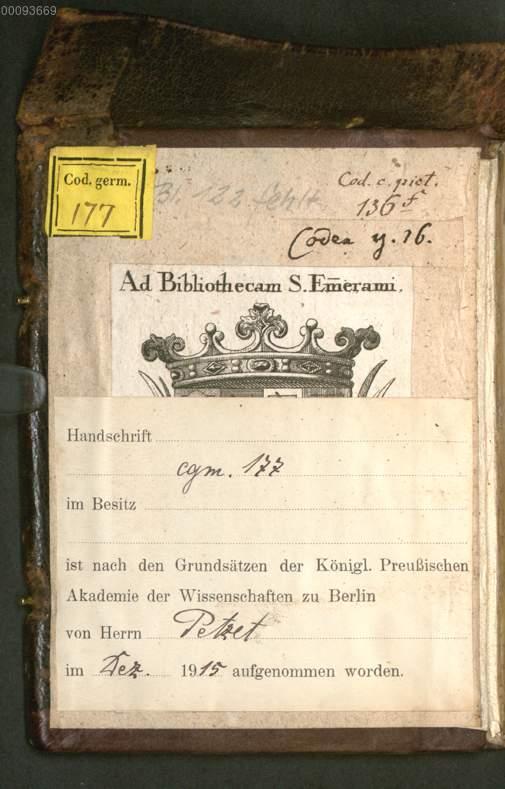 00093669
Cod. germ.
177
Bl. 122 fehlt
Cod. c. pict.
136 f
Codex y. 16.
Ad Bibliothecam S. Em̄erami.
Handschrift
cgm. 177
im Besitz
ist nach den Grundsätzen der Königl. Preußischen
Akademie der Wissenschaften zu Berlin
von Herrn Petzet
im Dez. 1915 aufgenommen worden.